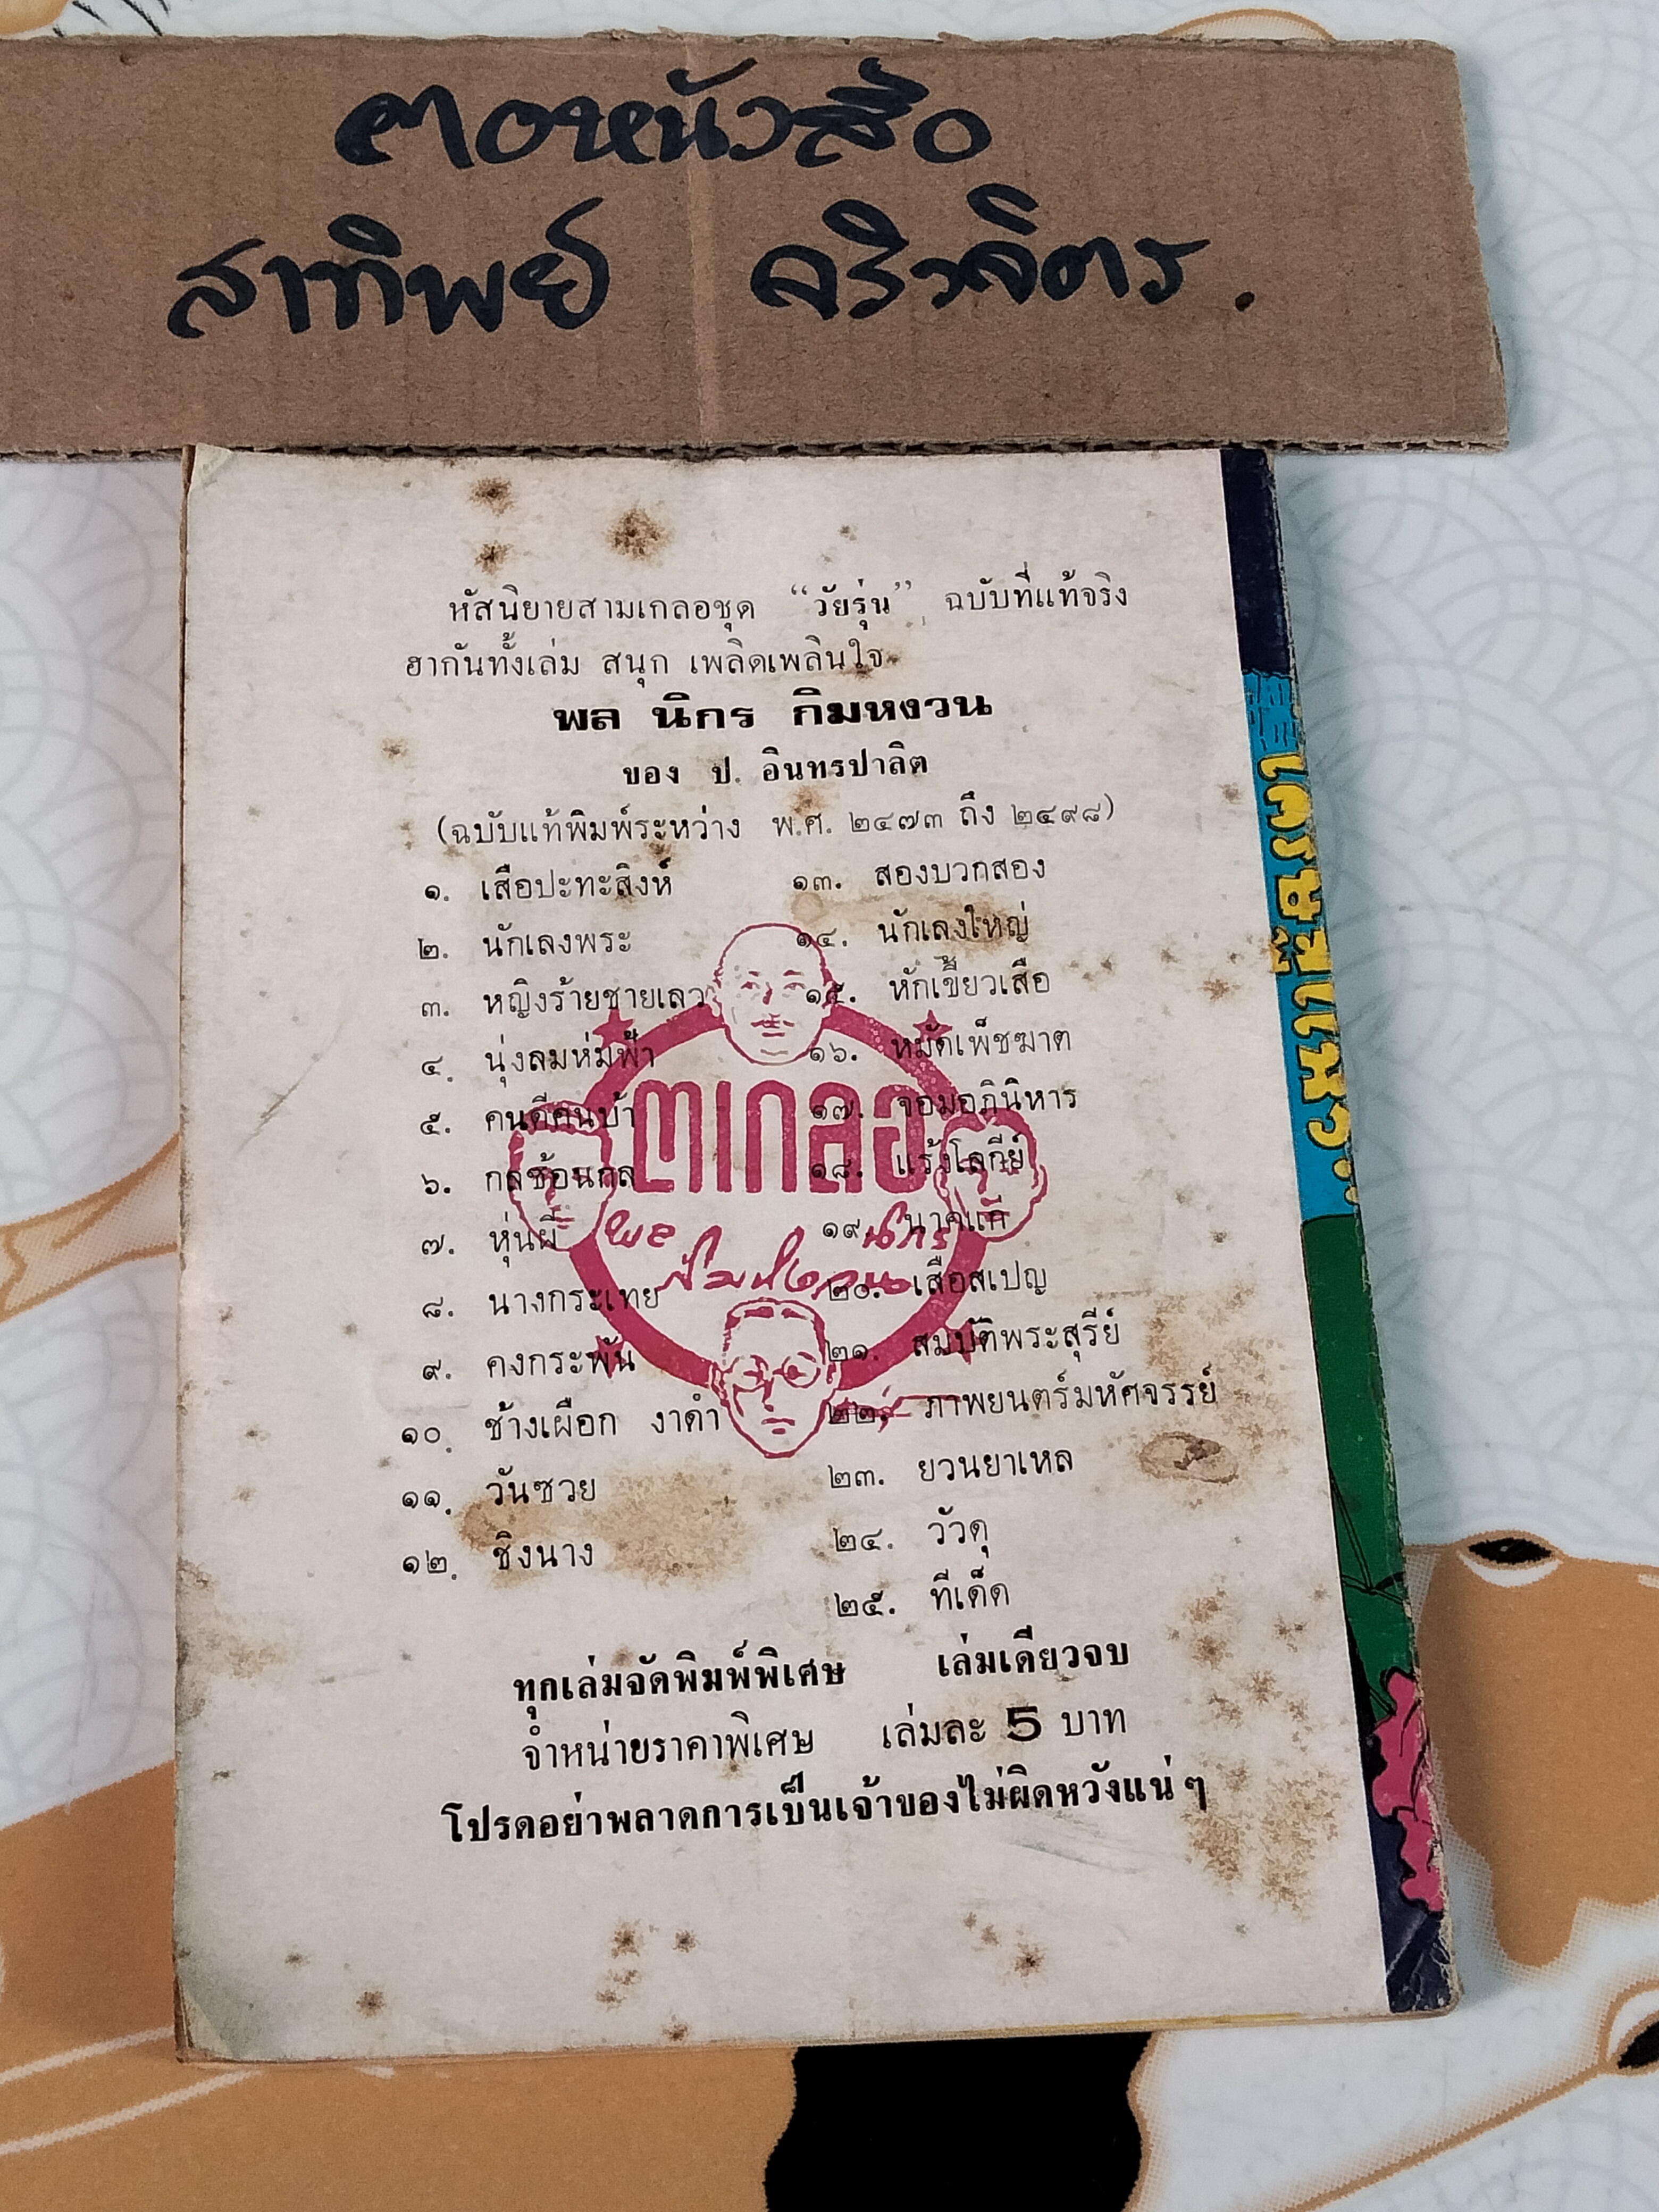 ฅอหนังสือ
สาทิพย์ จริวจิตร.
หัสนิยายสามเกลอชุด “วัยรุ่น” ฉบับที่แท้จริง
ฮากันทั้งเล่ม สนุก เพลิดเพลินใจ
พล นิกร กิมหงวน
ของ ป. อินทรปาลิต
(ฉบับแท้พิมพ์ระหว่าง พ.ศ. ๒๔๗๓ ถึง ๒๔๙๘)
๑. เสือปะทะสิงห์
๒. นักเลงพระ
๓. หญิงร้ายชายเลว
๔. นุ่งลมห่มฟ้า
๕. คนดีคนบ้า
๖. กลซ้อนกล
๗. หุ่นผี
๘. นางกระเทย
๙. คงกระพัน
๑๐. ช้างเผือก งาดำ
๑๑. วันซวย
๑๒. ชิงนาง
๑๓. สองบวกสอง
๑๔. นักเลงใหญ่
๑๕. หักเขี้ยวเสือ
๑๖. หมัดเพ็ชฆาต
๑๗. จอมอภินิหาร
๑๘. แร้งโลกีย์
๑๙. นาคแก้
๒๐. เสือสเปญ
๒๑. สมบัติพระสุรีย์
๒๒. ภาพยนตร์มหัศจรรย์
๒๓. ยวนยาเหล
๒๔. วัวดุ
๒๕. ทีเด็ด
๓เกลอ
พล นิกร
กิมหงวน
ทุกเล่มจัดพิมพ์พิเศษ เล่มเดียวจบ
จำหน่ายราคาพิเศษ เล่มละ 5 บาท
โปรดอย่าพลาดการเป็นเจ้าของไม่ผิดหวังแน่ ๆ